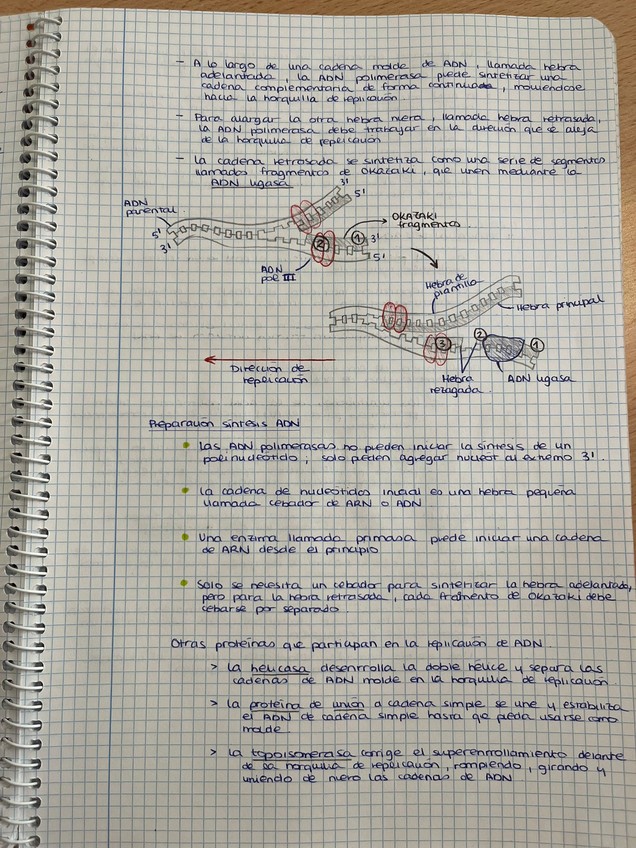 - A lo largo de una cadena molde de ADN, llamada hebra
adelantada, la ADN polimerasa puede sintetizar una
cadena complementaria de forma continuada, moviendose
hacia la horquilla de replicación
- Para alargar la otra hebra nueva, llamada hebra retrasada,
la ADN polimerasa debe trabajar en la dirección que se aleja
de la horquilla de replicación
- La cadena retrasada se sintetiza como una serie de segmentos
llamados fragmentos de OKAZAKI, que unen mediante la
ADN ligasa
3'
5'
ADN
parental
5'
3'
OKAZAKI
fragmentos
2
1
3'
5'
ADN
pol III
Hebra de
plantilla
Hebra principal
3
2
1
Dirección de
replicación
Hebra
rezagada
ADN ligasa
Preparación síntesis ADN
• Las ADN polimerasas no pueden iniciar la síntesis de un
polinucleótido, solo pueden agregar nucleot al extremo 3'.
• La cadena de nucleótidos inicial es una hebra pequeña
llamada cebador de ARN o ADN
• Una enzima llamada primasa puede iniciar una cadena
de ARN desde el principio
• Solo se necesita un cebador para sintetizar la hebra adelantada,
pero para la hebra retrasada, cada fragmento de Okazaki debe
cebarse por separado
Otras proteínas que participan en la replicación de ADN
> La helicasa desenrrolla la doble hélice y separa las
cadenas de ADN molde en la horquilla de replicación
> La proteína de unión a cadena simple se une y estabiliza
el ADN de cadena simple hasta que pueda usarse como
molde
> La topoisomerasa corrige el superenrollamiento delante
de la horquilla de replicación, rompiendo, girando y
uniendo de nuevo las cadenas de ADN